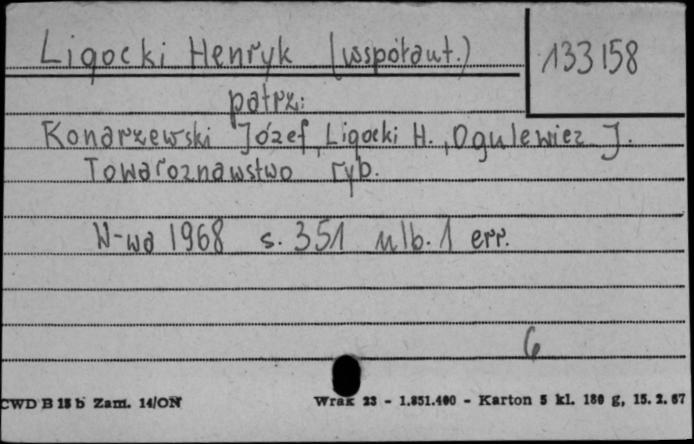 Ligocki Henryk (współaut.)
133158
patrz:
Konarzewski Józef, Ligocki H., Ogulewicz J.
Towaroznawstwo ryb.
W-wa 1968 s. 351 nlb. 1 err.
6
CWD B 18 b Zam. 14/ON Wrak 23 - 1.851.400 - Karton 5 kl. 180 g, 15. 2. 67